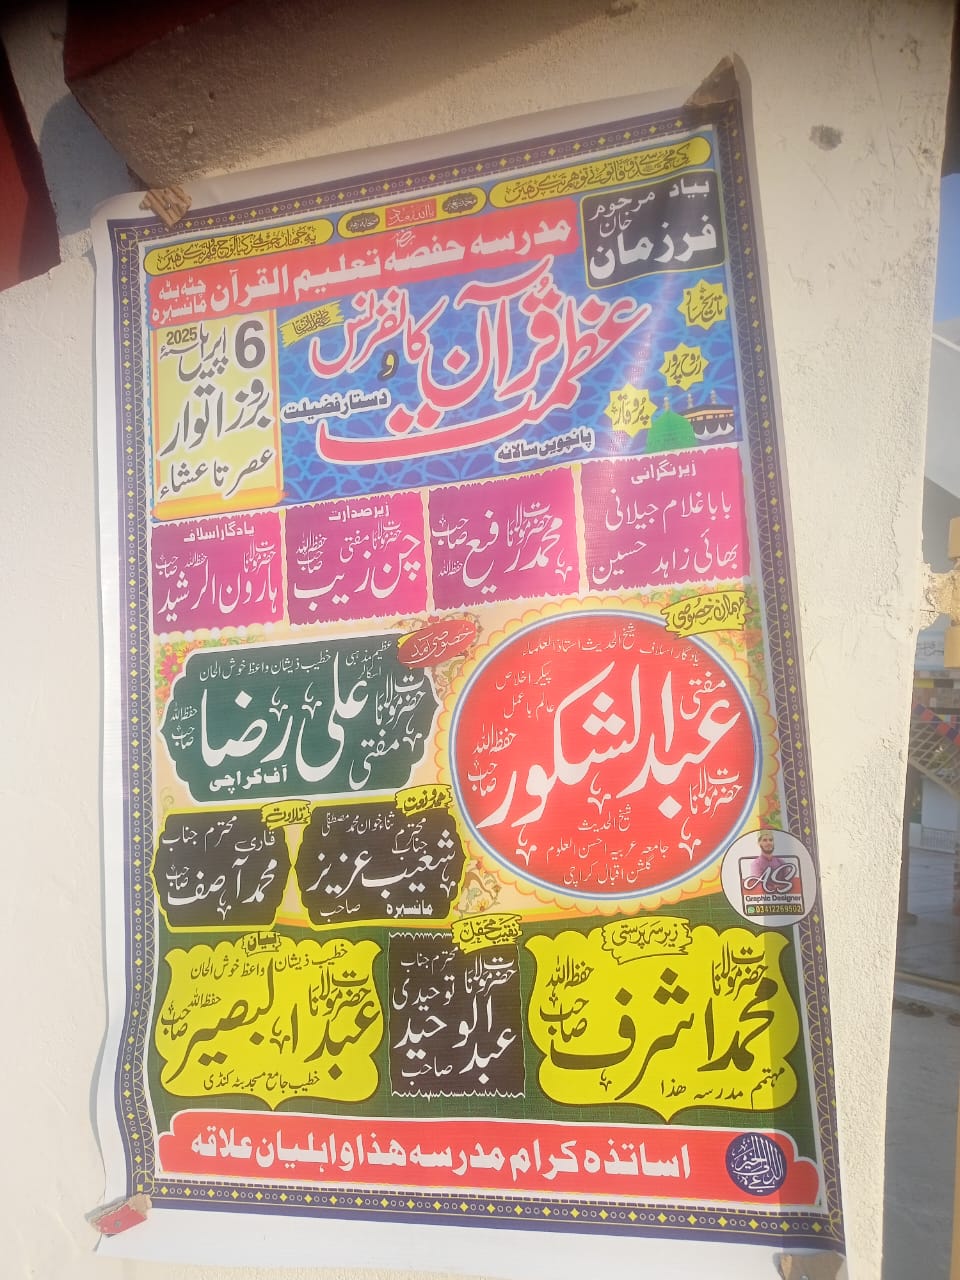 کی محمدؐ سے وفا تو نے تو ہم تیرے ہیں
یہ جہاں چیز ہے کیا لوح و قلم تیرے ہیں
یااللہ مدد
بیاد مرحوم
فرزمان خان
مدرسہ حفصہ تعلیم القرآن
بٹہ
مانسہرہ
تاریخ ساز
روح پرور
پروقار
عظیم الشان
عظمت قرآن کانفرنس
و
دستار فضیلت
پانچویں سالانہ
6 اپریل 2025ء
بروز اتوار
عصر تا عشاء
زیرنگرانی
بابا غلام جیلانی
بھائی زاہد حسین
حضرت مولانا محمد رفیع صاحب حفظہ اللہ
زیر صدارت
حضرت مولانا مفتی چن زیب صاحب حفظہ اللہ
یادگار اسلاف
حضرت مولانا ہارون الرشید صاحب حفظہ اللہ
مہمان خصوصی
یادگار اسلاف شیخ الحدیث استاذ العلماء
پیکر اخلاص
عالم باعمل
حضرت مولانا مفتی عبدالشکور صاحب حفظہ اللہ
شیخ الحدیث
جامعہ عربیہ احسن العلوم
گلشن اقبال کراچی
خصوصی آمد
عظیم مذہبی اسکالر خطیب ذیشان واعظ خوش الحان
حضرت مولانا مفتی علی رضا صاحب حفظہ اللہ
آف کراچی
حمد و نعت
ثناء خوان محمد مصطفیٰ
محترم جناب
شعیب عزیز صاحب
مانسہرہ
تلاوت
قاری محترم جناب
محمد آصف صاحب
AS
Graphic Designer
03412269502
زیر سرپرستی
حضرت مولانا محمد اشرف صاحب حفظہ اللہ
مہتمم مدرسہ ھذا
نقیب محفل
محترم جناب
حضرت مولانا توحیدی
عبدالوحید صاحب
بیان
خطیب ذیشان واعظ خوش الحان
حضرت مولانا عبدالبصیر صاحب حفظہ اللہ
خطیب جامع مسجد بٹہ کنڈی
اساتذہ کرام مدرسہ ھذا و اہلیان علاقہ